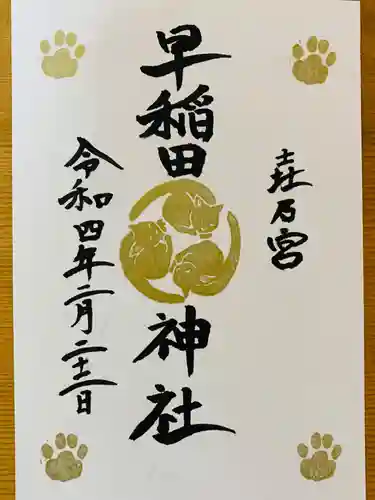 石宮
早稲田神社
令和四年二月二十二日